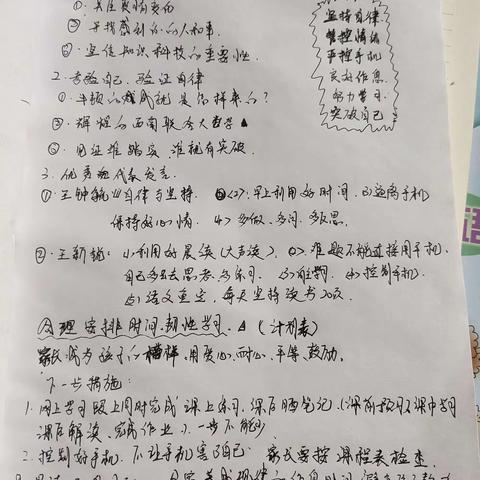 ① 关注疫情变面
② 寻找感动的人和事
③ 宣传知识科技的重要性.
2. 考验自己. 验证自律
① 牛顿的成就是怎样来的?
② 辉煌的西南联合大学
③ 见证谁踏实, 谁就有突破.
3. 优秀 代表发言.
① 自律与坚持. <2> 早上利用好时间. 3) 远离手机
保持好心情. 4> 多做、多问. 多反思.
② 王新 : 1) 利用好晨读 (大声读). 2>. 难题不能过接用手机.
自己多去思考. 多练习. 4) 控制手机.
5) 语文重点, 每天坚持读书20页.
合理安排时间. 学习. (计划表)
家长成为孩子的榜样. 用爱心. 耐心. 平等. 鼓励.
下一步措施:
1. 网上学习跟上同时完成课上练习. 课后晒笔记. (课前预习课中学习
课后解决、完成作业). 一步不能少
2. 控制好手机. 不让手机害了自己. 家长要按课程表检查.
坚持自律
管控情绪
严控手机
良好作息
努力学习
突破自己